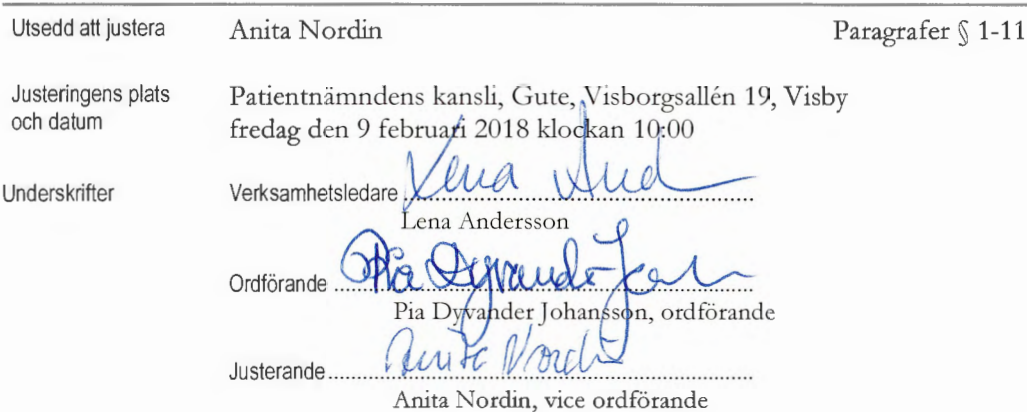 Utsedd att justera Anita Nordin Paragrafer § 1-11
Justeringens plats och datum Patientnämndens kansli, Gute, Visborgsallén 19, Visby
fredag den 9 februari 2018 klockan 10:00
Underskrifter Verksamhetsledare Lena And
Lena Andersson
Ordförande Pia Dyvander Joh
Pia Dyvander Johansson, ordförande
Justerande Anita Nordin
Anita Nordin, vice ordförande